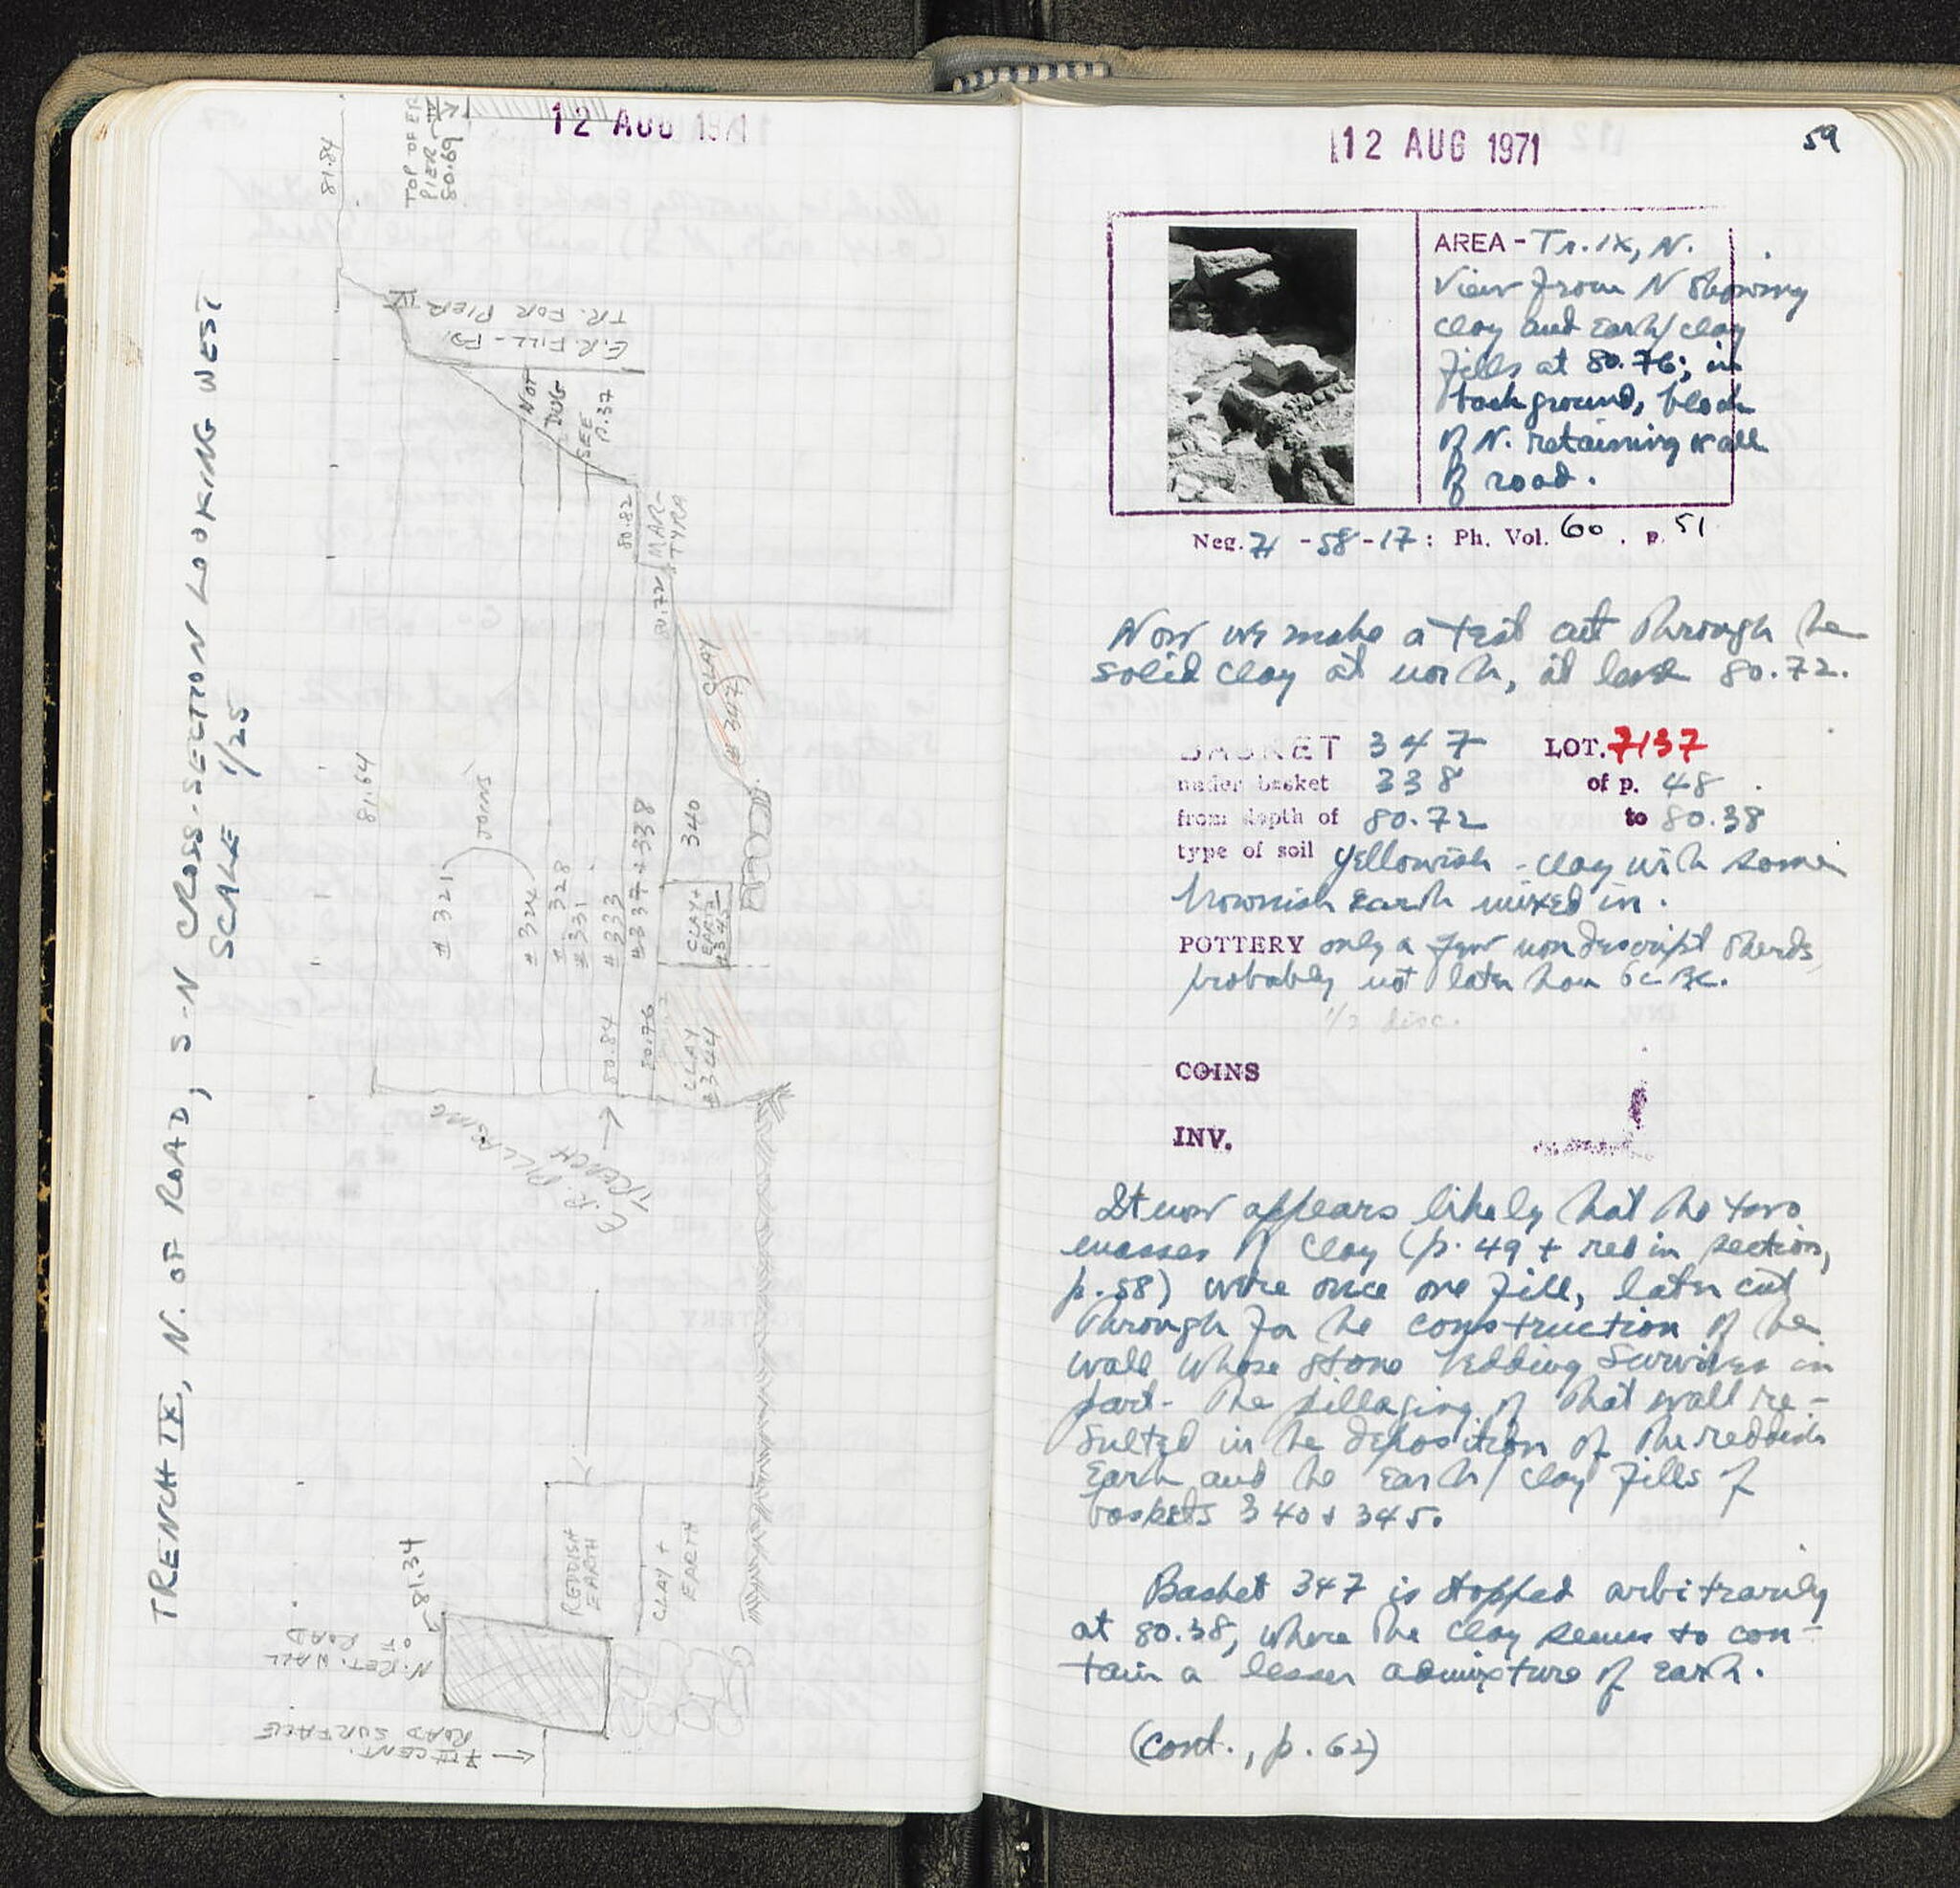 12 AUG 1971
TRENCH IX, N. OF ROAD, S-N CROSS-SECTION LOOKING WEST
SCALE 1/25
81.84
TOP OF ER
PIER IV
80.69
E.R. FILL-
TR. FOR PIER
IV
NOT
DUG
SEE
P.37
80.82
MAR-
TYRA
80.72
CLAY
(# 347)
81.64
JOINS
# 321
# 324
# 328
# 331
# 333
# 337 + 338
340
CLAY +
EARTH
# 345
80.84
80.76
CLAY
# 344
E.R. PILLAGING
TRENCH
81.34
REDDISH
EARTH
CLAY +
EARTH
N. RET. WALL
OF ROAD
CENT.
ROAD SURFACE
12 AUG 1971
59
AREA - Tr. IX, N.
View from N showing
clay and earth/clay
fills at 80.76; in
background, block
of N. retaining wall
of road.
Neg. 71 -58-17 : Ph. Vol. 60 . p. 51
Now we make a test cut through the
solid clay at north, at level 80.72.
BASKET 347 LOT. 7137
under basket 338 of p. 48
from depth of 80.72 to 80.38
type of soil yellowish - clay with some
brownish earth mixed in.
POTTERY only a few nondescript sherds,
probably not later than 6c BC.
1/2 disc.
COINS
INV.
It now appears likely that the two
masses of clay (p. 49 + red in section,
p. 58) were once one fill, later cut
through for the construction of the
wall whose stone bedding survives in
part. The pillaging of that wall re-
sulted in the deposition of the reddish
earth and the earth/clay fills of
baskets 340 + 345.
Basket 347 is stopped arbitrarily
at 80.38, where the clay seems to con-
tain a lesser admixture of earth.
(cont., p. 62)